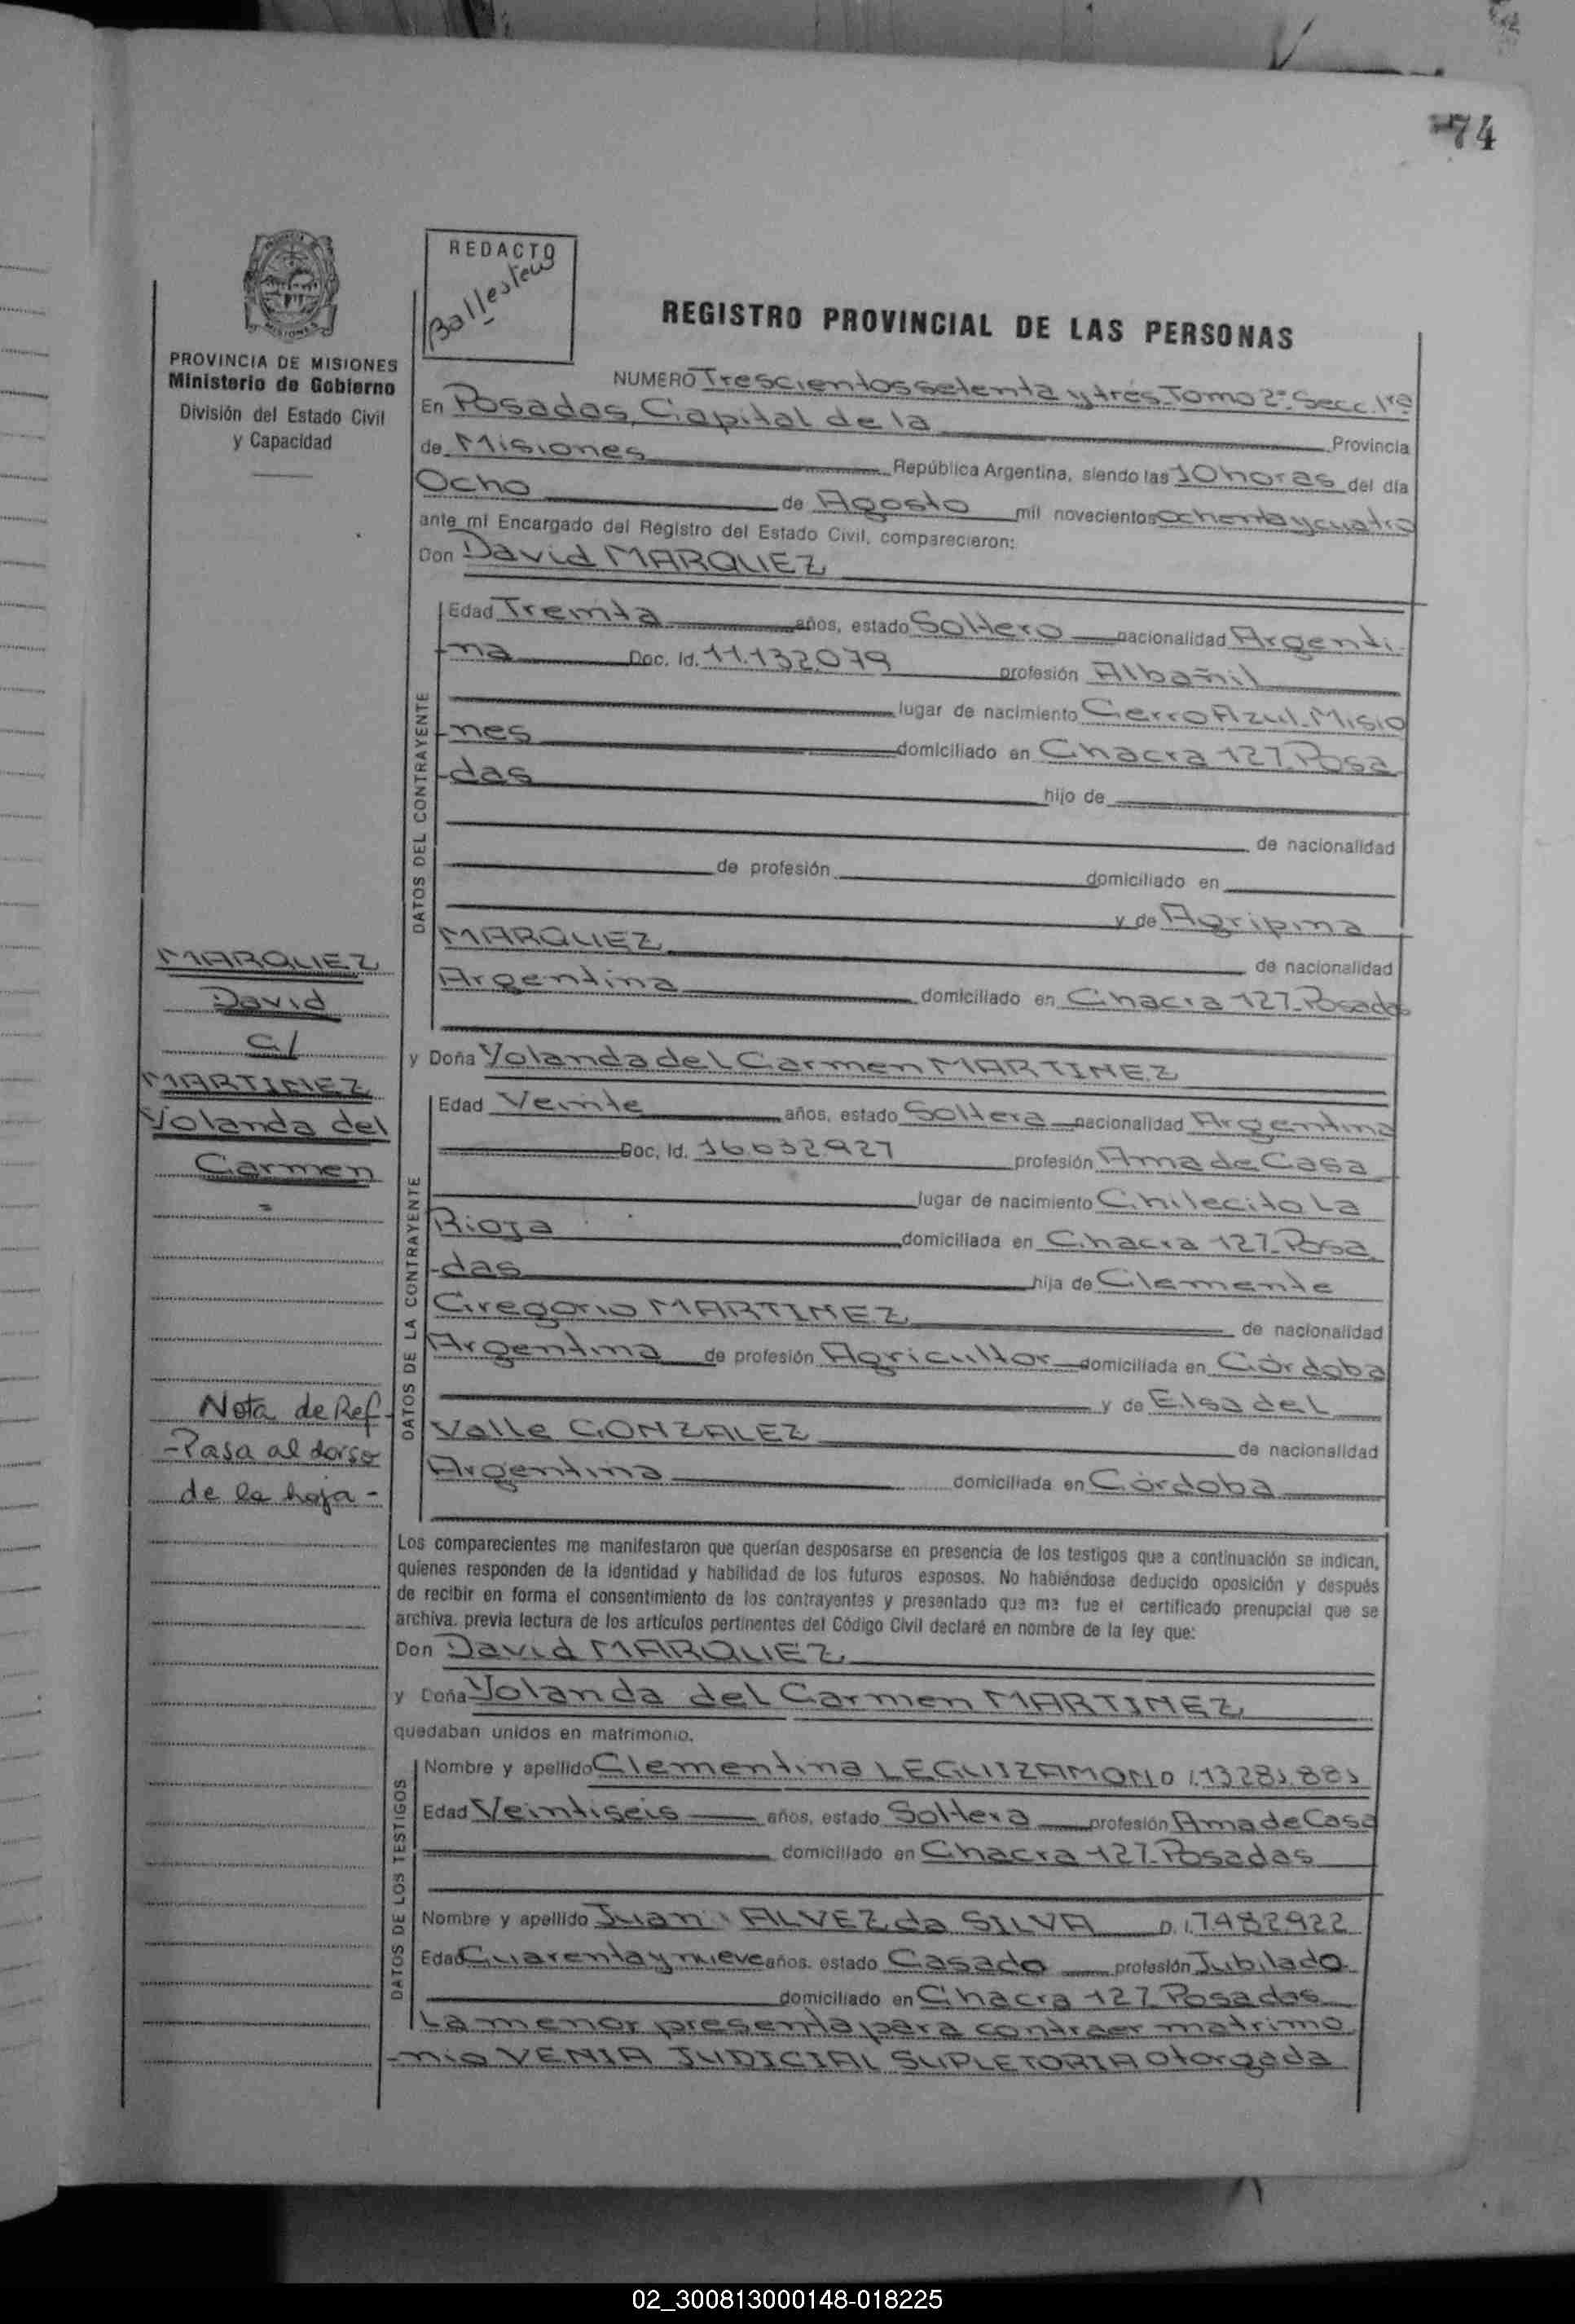 74
REDACTO
Ballesteros
PROVINCIA DE MISIONES
Ministerio de Gobierno
División del Estado Civil
y Capacidad
REGISTRO PROVINCIAL DE LAS PERSONAS
NUMERO Trescientos setenta y tres Tomo 2º Secc. 1ra
En Posadas, Capital de la Provincia
de Misiones República Argentina, siendo las 10 horas del día
Ocho de Agosto mil novecientos ochenta y cuatro
ante mí Encargado del Registro del Estado Civil, comparecieron:
Don David MARQUEZ
DATOS DEL CONTRAYENTE
Edad Treinta años, estado Soltero nacionalidad Argenti-
-na Doc. Id. 11.132.079 profesión Albañil
lugar de nacimiento Cerro Azul. Misio
-nes domiciliado en Chacra 127. Posa
-das hijo de
de nacionalidad
de profesión domiciliado en
y de Agripina
MARQUEZ de nacionalidad
Argentina domiciliado en Chacra 127- Posadas
MARQUEZ
David
C/
MARTINEZ
Yolanda del
Carmen
=
y Doña Yolanda del Carmen MARTINEZ
DATOS DE LA CONTRAYENTE
Edad Veinte años, estado Soltera nacionalidad Argentina
Doc. Id. 16.032.927 profesión Ama de Casa
lugar de nacimiento Chilecito La
Rioja domiciliada en Chacra 127- Posa
-das hija de Clemente
Gregorio MARTINEZ de nacionalidad
Argentina de profesión Agricultor domiciliada en Córdoba
y de Elsa del
Valle GONZALEZ de nacionalidad
Argentina domiciliada en Córdoba
Nota de Ref-
-Pasa al dorso
de la hoja-
Los comparecientes me manifestaron que querían desposarse en presencia de los testigos que a continuación se indican,
quienes responden de la identidad y habilidad de los futuros esposos. No habiéndose deducido oposición y después
de recibir en forma el consentimiento de los contrayentes y presentado que me fue el certificado prenupcial que se
archiva, previa lectura de los artículos pertinentes del Código Civil declaré en nombre de la ley que:
Don David MARQUEZ
y Doña Yolanda del Carmen MARTINEZ
quedaban unidos en matrimonio.
DATOS DE LOS TESTIGOS
Nombre y apellido Clementina LEGUIZAMON D.I.
Edad Veintiseis años, estado Soltera profesión Ama de Casa
domiciliado en Chacra 127- Posadas
Nombre y apellido Juan ALVEZ da SILVA D.I. 7.482.922
Edad Cuarenta y nueve años, estado Casado profesión Jubilado
domiciliado en Chacra 127- Posadas
La menor presenta para contraer matrimo
-nio VENIA JUDICIAL SUPLETORIA otorgada
02_300813000148-018225